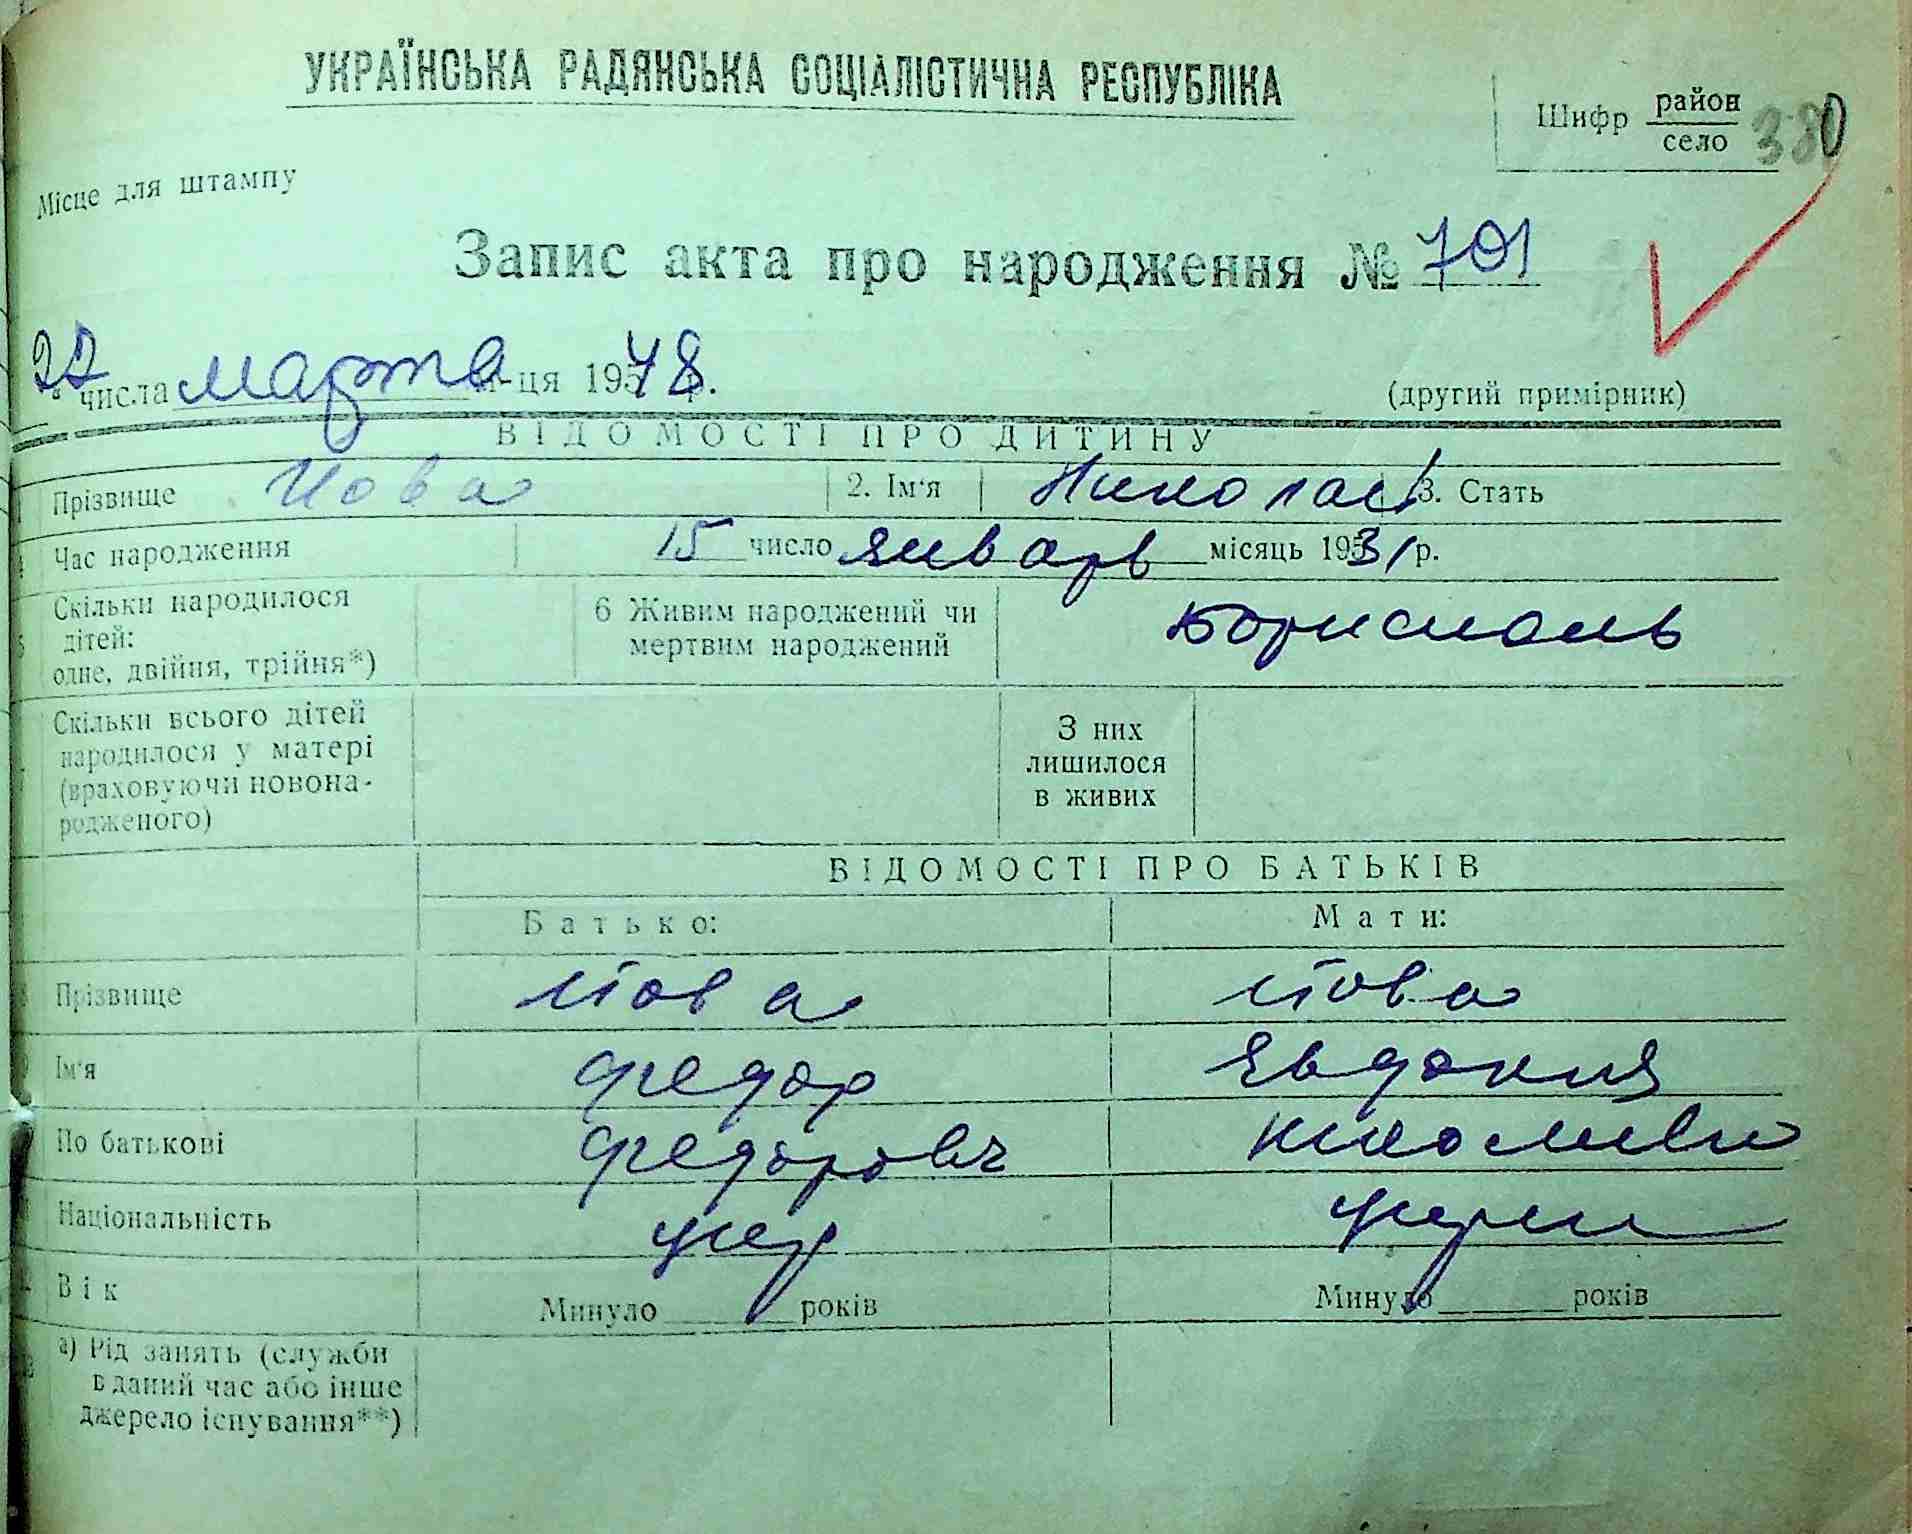 УКРАЇНСЬКА РАДЯНСЬКА СОЦІАЛІСТИЧНА РЕСПУБЛІКА
Шифр район село 380
Місце для штампу
Запис акта про народження № 701
22 числа марта м-ця 1948 р.
(другий примірник)
ВІДОМОСТІ ПРО ДИТИНУ
Прізвище Иова 2. Ім'я Николай 3. Стать
Час народження 15 число январь місяць 1931 р.
Скільки народилося дітей: одне, двійня, трійня*) 6 Живим народжений чи мертвим народжений Борисполь
Скільки всього дітей народилося у матері (враховуючи новонародженого) З них лишилося в живих
ВІДОМОСТІ ПРО БАТЬКІВ
Батько: Мати:
Прізвище Иова Иова
Ім'я Федор Явдокия
По батькові Федорович
Національність укр
Вік Минуло років Минуло років
а) Рід занять (служби в даний час або інше джерело існування**)